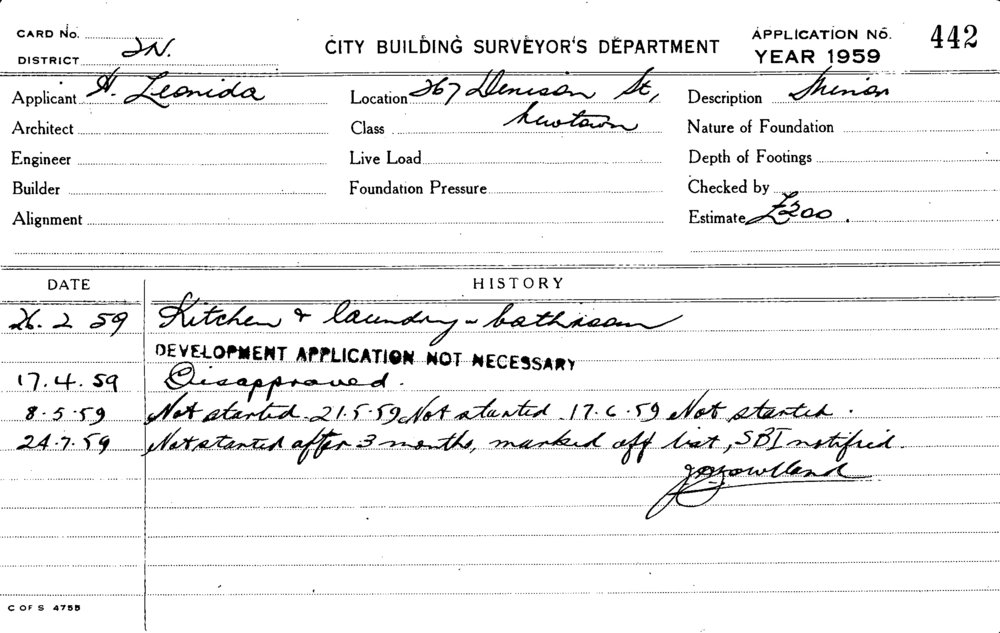 CARD No.
DISTRICT 2N.
CITY BUILDING SURVEYOR'S DEPARTMENT
APPLICATION No. 442
YEAR 1959
Applicant H. Leonida
Location 267 Denison St,
Description Minor
Architect
Class Newtown
Nature of Foundation
Engineer
Live Load
Depth of Footings
Builder
Foundation Pressure
Checked by
Alignment
Estimate £200.
DATE HISTORY
26. 2 59 Kitchen & laundry - bathroom
DEVELOPMENT APPLICATION NOT NECESSARY
17. 4. 59 Disapproved.
8. 5. 59 Not started. 21.5.59 Not started. 17.6.59 Not started.
24.7.59 Not started after 3 months, marked off list, SBI notified.
C OF S 4755